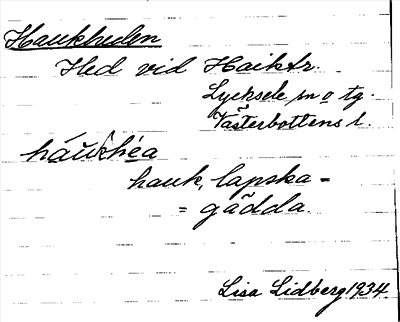 Haukheden
Hed vid Haiktr.
Lycksele sn o tg.
Västerbottens l.
háukhéa
hauk, lapska =
= gädda.
Lisa Lidberg 1934